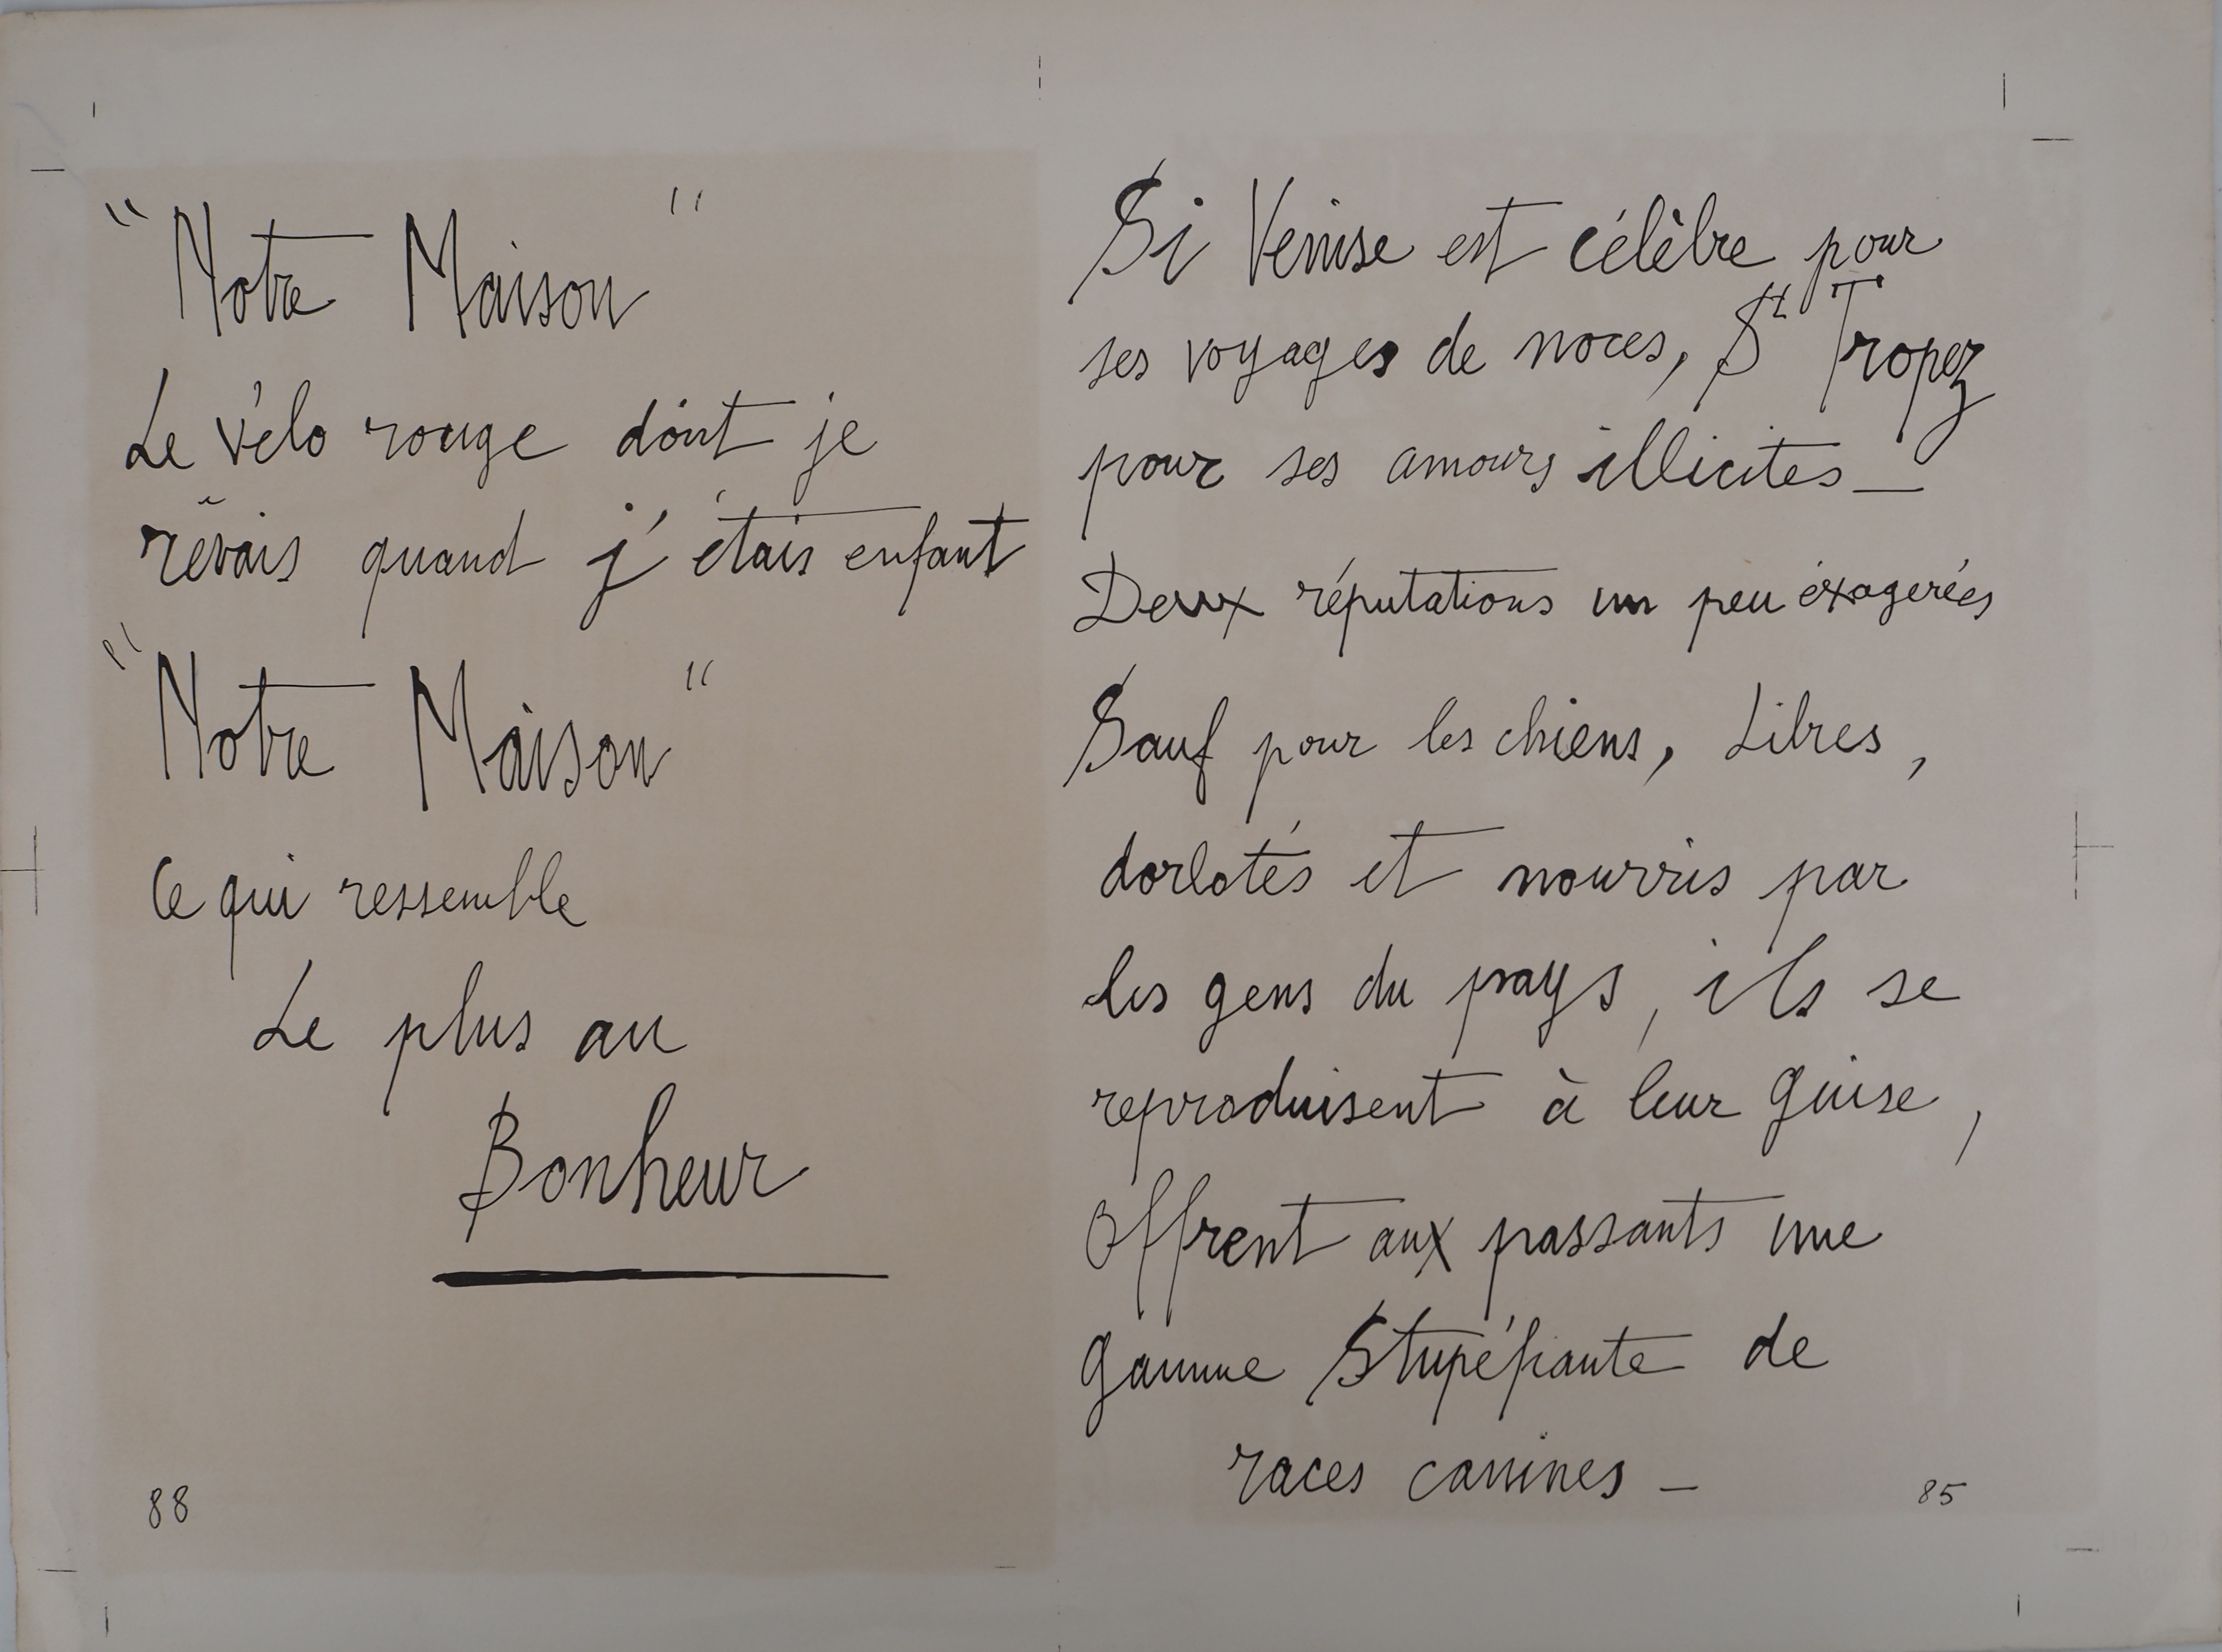 "Notre Maison"
Le vélo rouge dont je
rêvais quand j'étais enfant
"Notre Maison"
Ce qui ressemble
Le plus au
Bonheur
88
Si Venise est célèbre pour
ses voyages de noces, St Tropez
pour ses amours illicites —
Deux réputations un peu éxagerées
Sauf pour les chiens, Libres,
dorlotés et nourris par
les gens du pays, ils se
reproduisent à leur guise,
Offrent aux passants une
gamme Stupéfiante de
races canines —
85